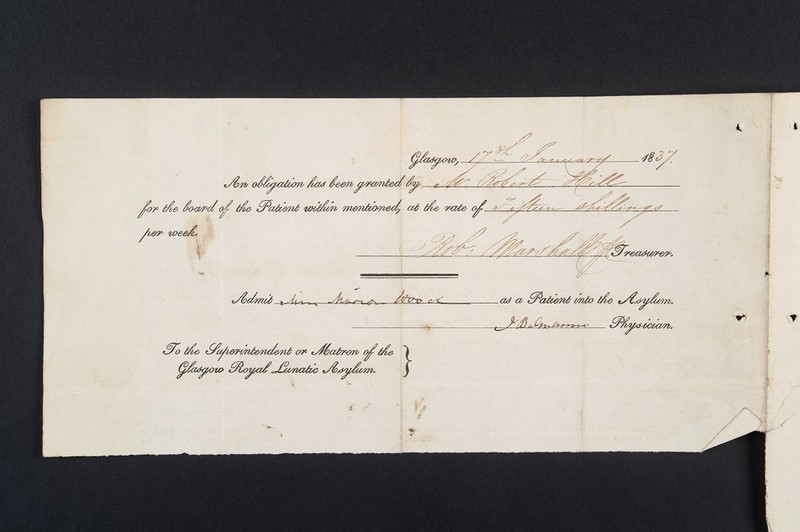 Glasgow, 17th January 1837.
An obligation has been granted by Mr Robert Hill
for the board of the Patient within mentioned, at the rate of Fifteen shillings
per week.
Rob. Marshall Treasurer.
Admit Marion Wood as a Patient into the Asylum.
Physician.
To the Superintendent or Matron of the
Glasgow Royal Lunatic Asylum.